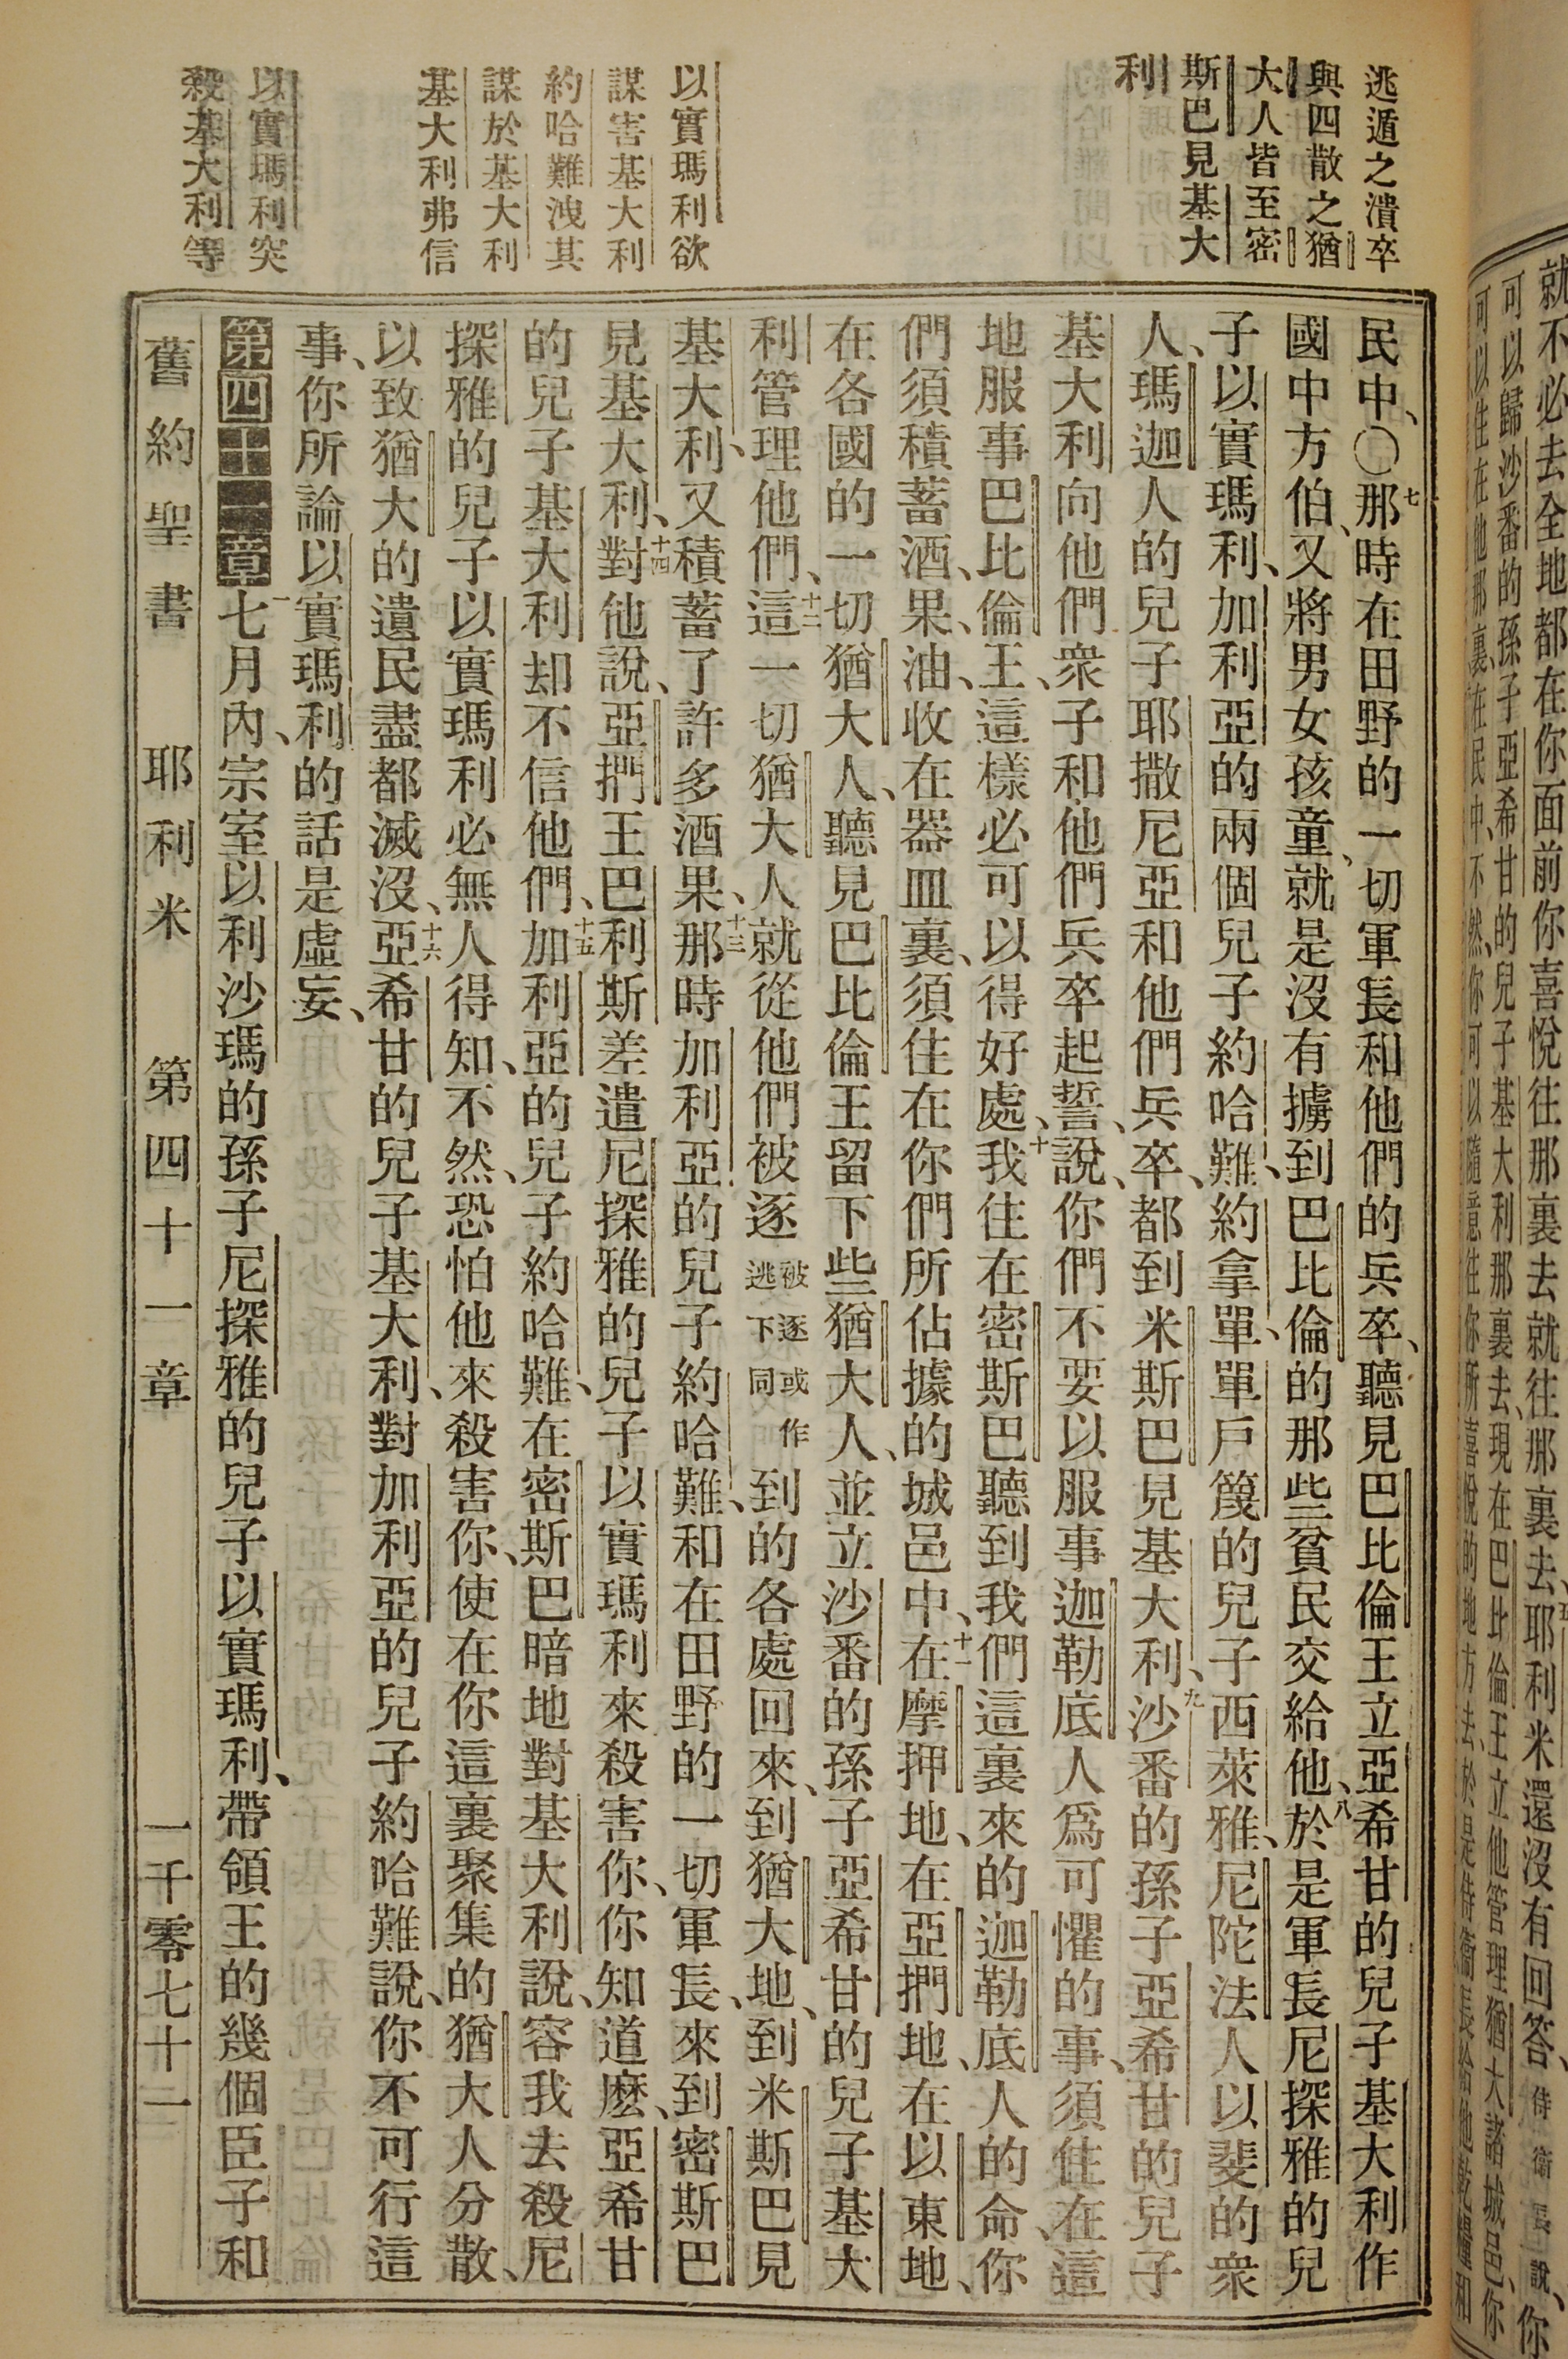 逃遁之潰卒
與四散之猶
大人皆至密
斯巴見基大
利
以實瑪利欲
謀害基大利
約哈難洩其
謀於基大利
基大利弗信
以實瑪利突
殺基大利等
民中、〇七那時在田野的一切軍長和他們的兵卒、聽見巴比倫王立亞希甘的兒子基大利作
國中方伯、又將男女孩童、就是沒有擄到巴比倫的那些貧民交給他、八於是軍長尼探雅的兒
子以實瑪利、加利亞的兩個兒子約哈難、約拿單、單戶篾的兒子西萊雅、尼陀法人以斐的衆
人、瑪迦人的兒子耶撒尼亞和他們兵卒、都到米斯巴見基大利、九沙番的孫子亞希甘的兒子
基大利向他們衆子和他們兵卒起誓、說、你們不要以服事迦勒底人爲可懼的事、須住在這
地服事巴比倫王、這樣必可以得好處、十我住在密斯巴聽到我們這裏來的迦勒底人的命、你
們須積蓄酒、果、油、收在器皿裏、須住在你們所佔據的城邑中、十一在摩押地、在亞捫地、在以東地、
在各國的一切猶大人、聽見巴比倫王留下些猶大人、並立沙番的孫子亞希甘的兒子基大
利管理他們、十二這一切猶大人就從他們被逐被逐或作逃下同到的各處回來、到猶大地、到米斯巴見
基大利、又積蓄了許多酒果、十三那時加利亞的兒子約哈難、和在田野的一切軍長、來到密斯巴
見基大利、十四對他說、亞捫王巴利斯差遣尼探雅的兒子以實瑪利來殺害你、你知道麽、亞希甘
的兒子基大利却不信他們、十五加利亞的兒子約哈難、在密斯巴暗地對基大利說、容我去殺尼
探雅的兒子以實瑪利必無人得知、不然、恐怕他來殺害你、使在你這裏聚集的猶大人分散、
以致猶大的遺民盡都滅沒、十六亞希甘的兒子基大利、對加利亞的兒子約哈難說、你不可行這
事、你所論以實瑪利的話是虛妄、
第四十一章一七月內、宗室以利沙瑪的孫子尼探雅的兒子以實瑪利、帶領王的幾個臣子和
舊約聖書 耶利米 第四十一章 一千零七十二